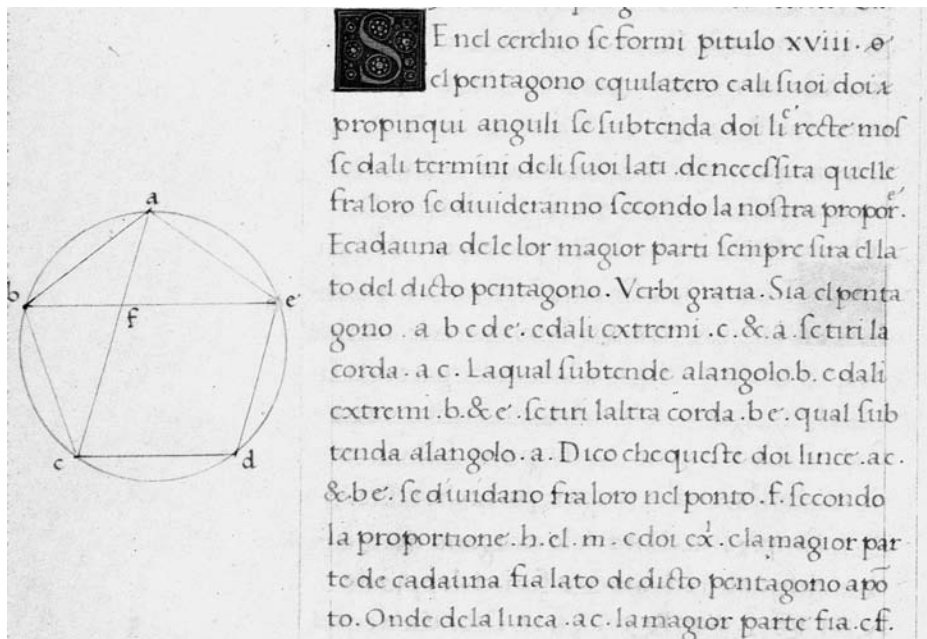 E nel cerchio se formi pitulo xviii. 
el pentagono equilatero e ali suoi doi
propinqui anguli se subtenda doi li recte mos
se dali termini deli suoi lati .de necessita quelle
fra loro se divideranno secondo la nostra propor.
E cadauna de le lor magior parti sempre sira el la
to del dicto pentagono. Verbi gratia. Sia el penta
gono . a b c d e. e dali extremi .c. & .a. se tiri la
corda .a c. La qual subtende alangolo .b. e dali
extremi .b. & e. se tiri laltra corda .b e. qual sub
tenda alangolo .a. Dico che queste doi linee .a c.
& .b e. se dividano fra loro nel ponto .f. secondo
la proportione .h. el .m. e doi ex. e la magior par
te de cadauna fia lato de dicto pentagono apo
to. Onde dela linea .a c. la magior parte fia .c f.
a
b
e
f
c
d